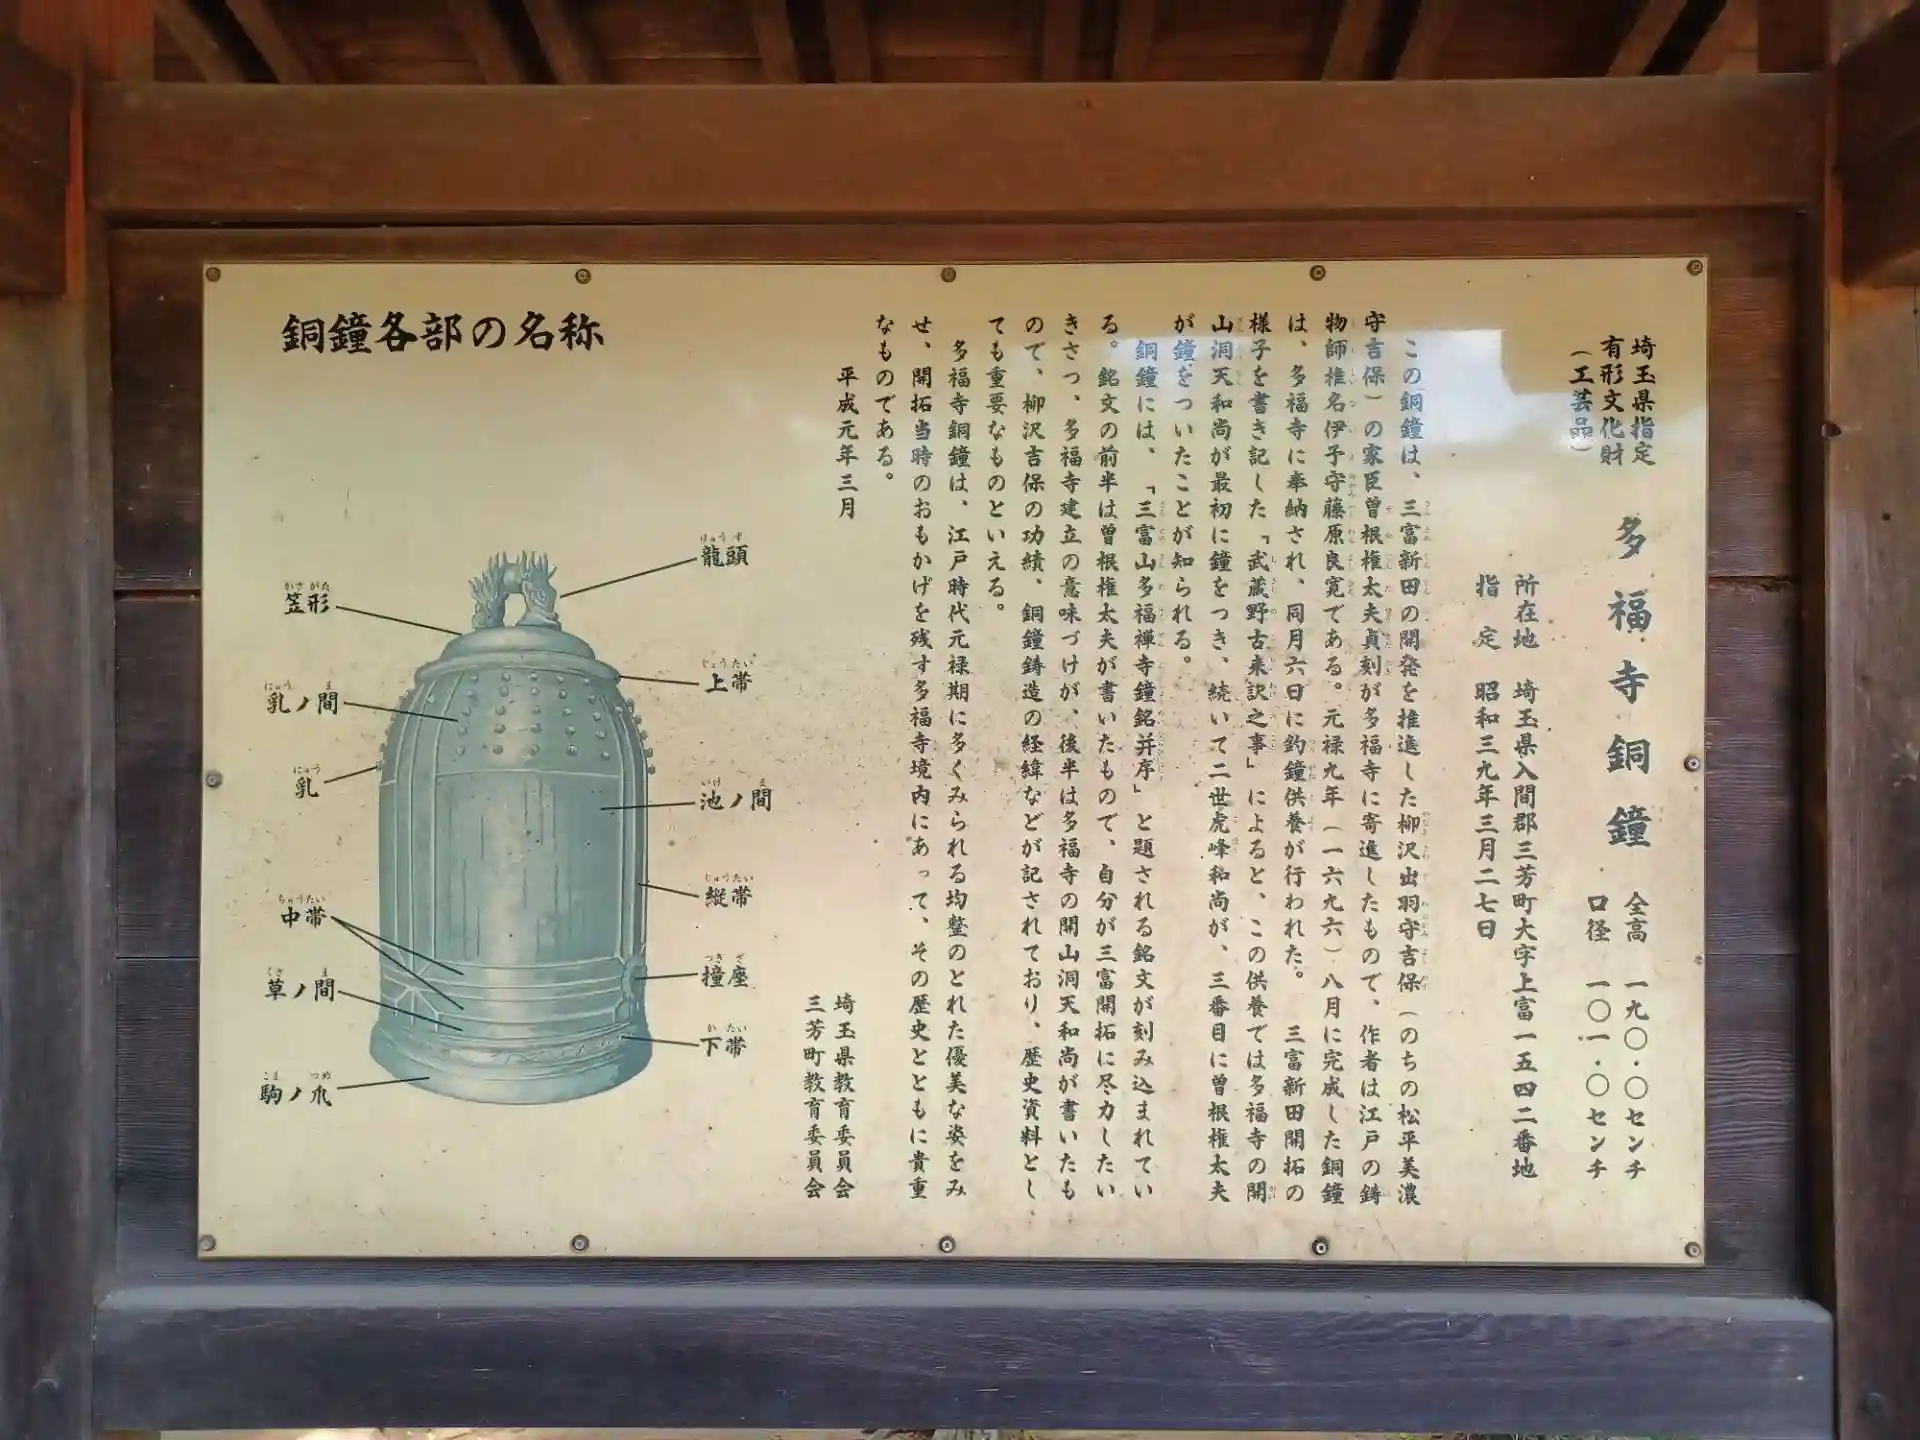 埼玉県指定
有形文化財
(工芸品)
多福寺銅鐘
全高 一九〇・〇センチ
口径 一〇一・〇センチ
所在地 埼玉県入間郡三芳町大字上富一五四二番地
指定 昭和三九年三月二七日
この銅鐘は、三富新田の開発を推進した柳沢出羽守吉保(のちの松平美濃
守吉保)の家臣曽根権太夫貞刻が多福寺に寄進したもので、作者は江戸の鋳
物師椎名伊予守藤原良寛である。元禄九年(一六九六)八月に完成した銅鐘
は、多福寺に奉納され、同月六日に釣鐘供養が行われた。 三富新田開拓の
様子を書き記した「武蔵野古来訳之事」によると、この供養では多福寺の開
山洞天和尚が最初に鐘をつき、続いて二世虎峰和尚が、三番目に曽根権太夫
が鐘をついたことが知られる。
銅鐘には、「三富山多福禅寺鐘銘并序」と題される銘文が刻み込まれてい
る。銘文の前半は曽根権太夫が書いたもので、自分が三富開拓に尽力したい
きさつ、多福寺建立の意味づけが、後半は多福寺の開山洞天和尚が書いたも
ので、柳沢吉保の功績、銅鐘鋳造の経緯などが記されており、歴史資料とし
ても重要なものといえる。
多福寺銅鐘は、江戸時代元禄期に多くみられる均整のとれた優美な姿をみ
せ、開拓当時のおもかげを残す多福寺境内にあって、その歴史とともに貴重
なものである。
平成元年三月
埼玉県教育委員会
三芳町教育委員会
銅鐘各部の名称
りゅうず
龍頭
かさがた
笠形
じょうたい
上帯
にゅう ま
乳ノ間
にゅう
乳
いけ ま
池ノ間
じゅうたい
縦帯
ちゅうたい
中帯
つきざ
撞座
くさ ま
草ノ間
かたい
下帯
こま つめ
駒ノ爪